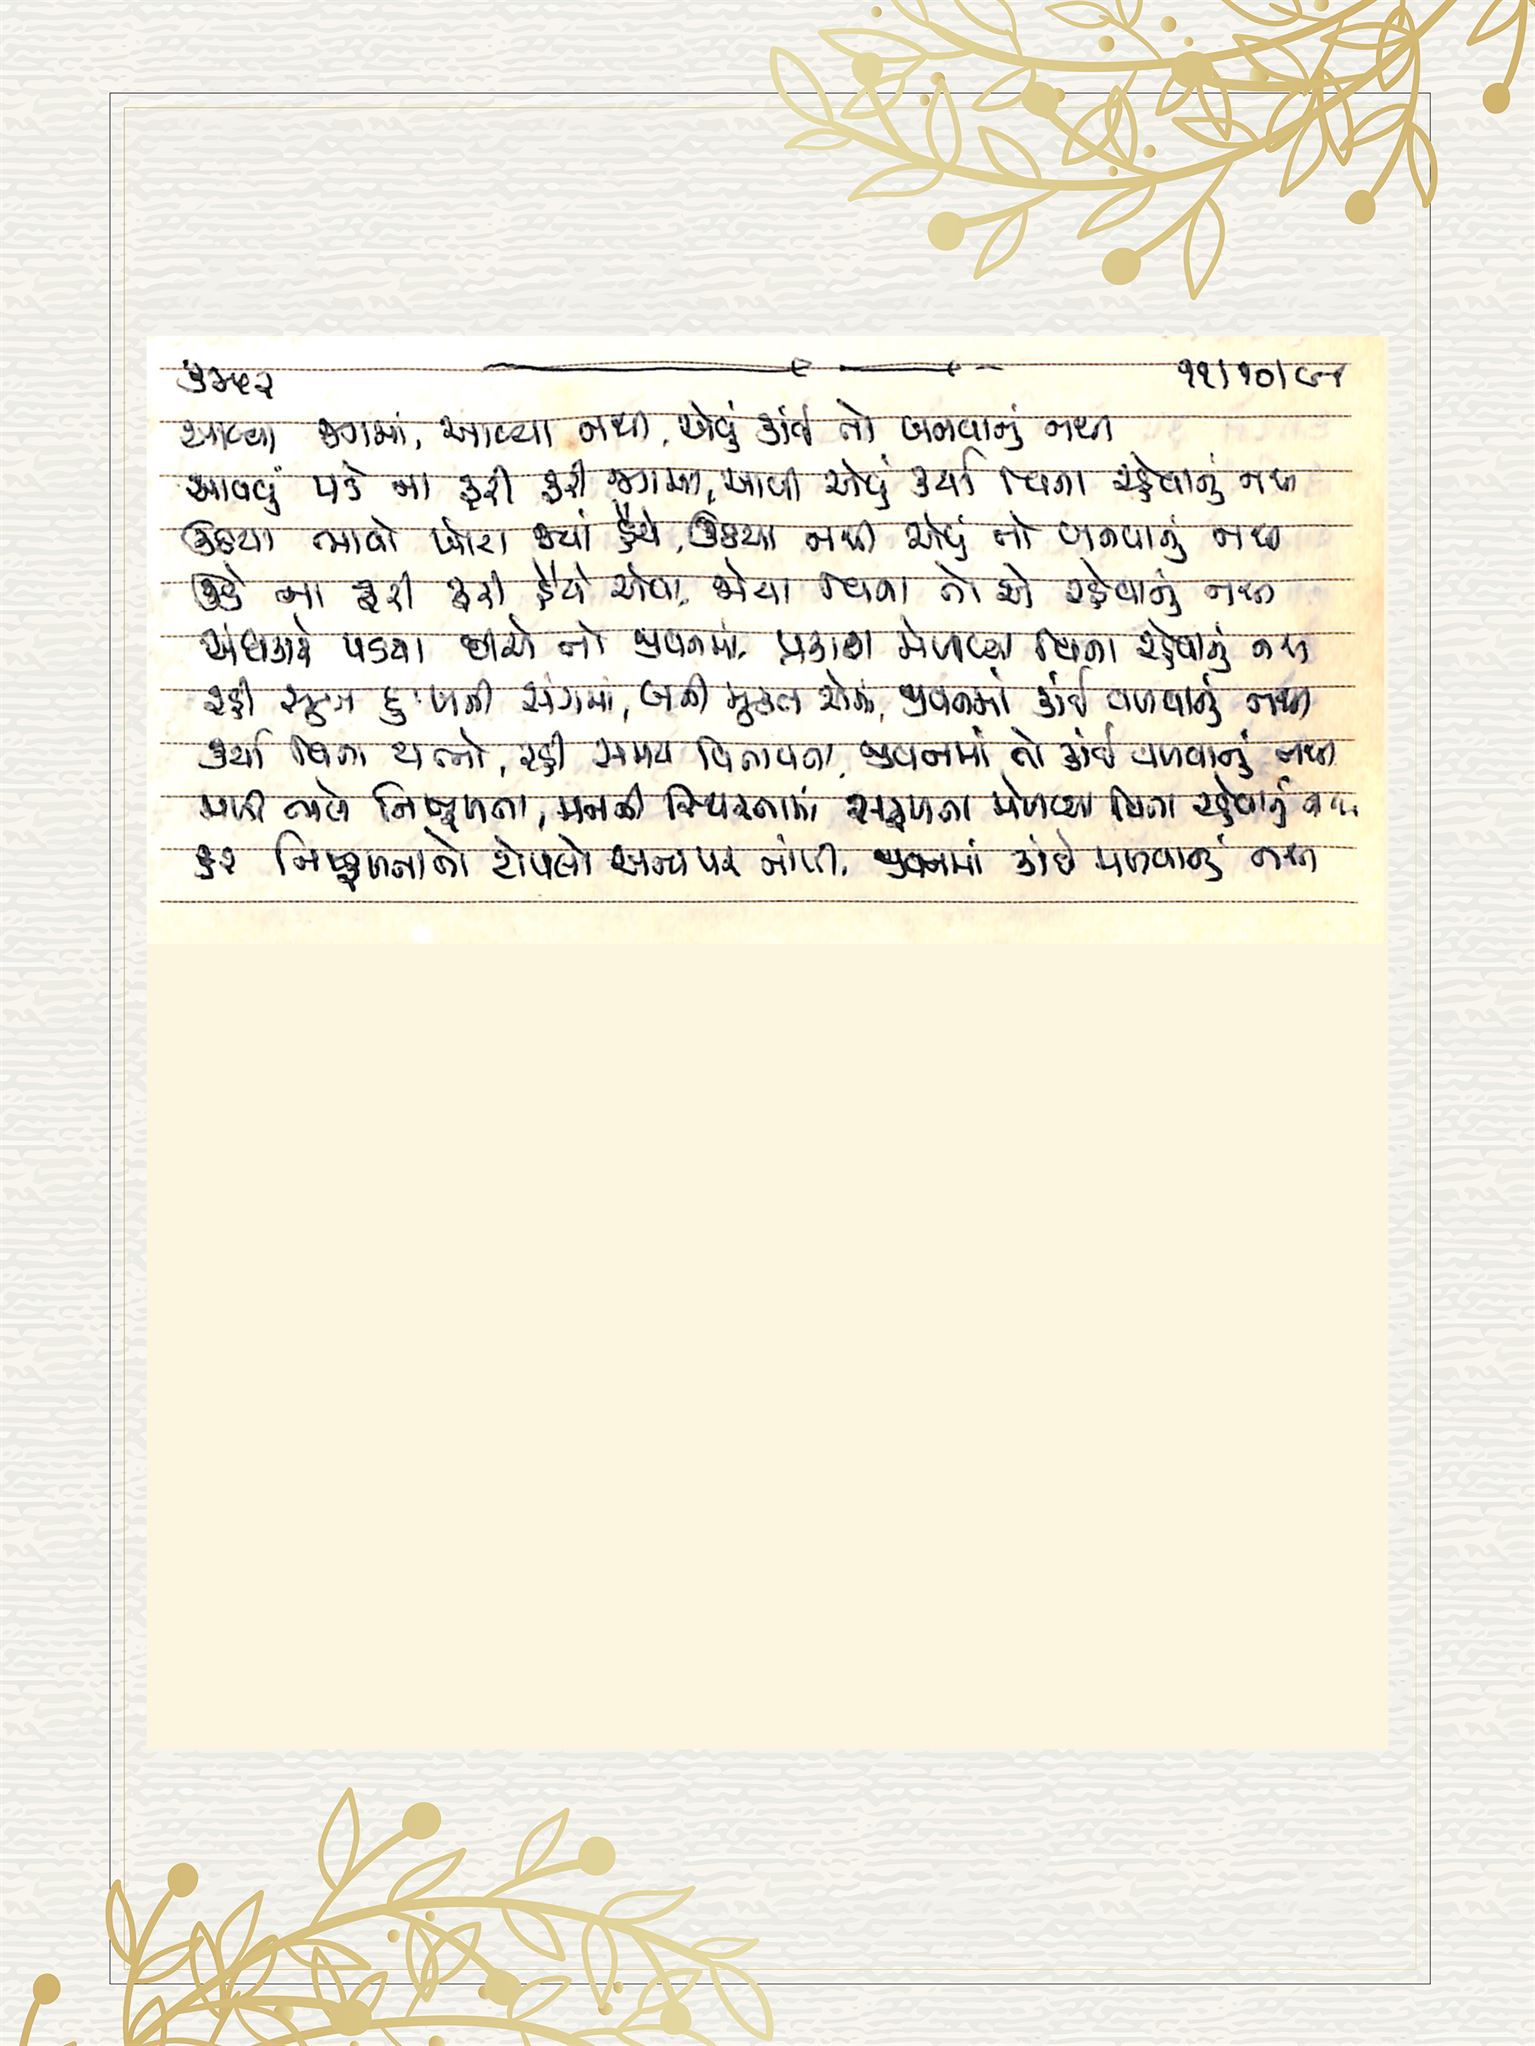 ૧૧/૧૦/૮૯
આવ્યા જગમાં, આવ્યા નથી, એવું કાંઈ તો બનવાનું નથી
આવવું પડે ના ફરી ફરી જગમાં, આવી એવું કર્યા વિના રહેવાનું નથી
ઊઠયા ભાવો ખોટા જ્યાં હૈયે, ઊઠયા નથી એવું તો બનવાનું નથી
ઊઠે ના ફરી ફરી હૈયે એવા, જોયા વિના તો એ રહેવાનું નથી
અંધકારે પડયા છીએ તો જીવનમાં, પ્રકાશ મેળવ્યા વિના રહેવાનું નથી
રહી સુખ દુઃખની સંગમાં, બની મશગૂલ એમાં, જીવનમાં કાંઈ વળવાનું નથી
કર્યા વિના યત્નો, રહી સમય વિતાવતા, જીવનમાં તો કાંઈ વળવાનું નથી
મળી ભલે નિષ્ફળતા, મનની સ્થિરતામાં સફળતા મેળવ્યા વિના રહેવાનું નથી
નિષ્ફળતાનો ટોપલો અન્ય પર નાંખી, જીવનમાં કાંઈ મળવાનું નથી